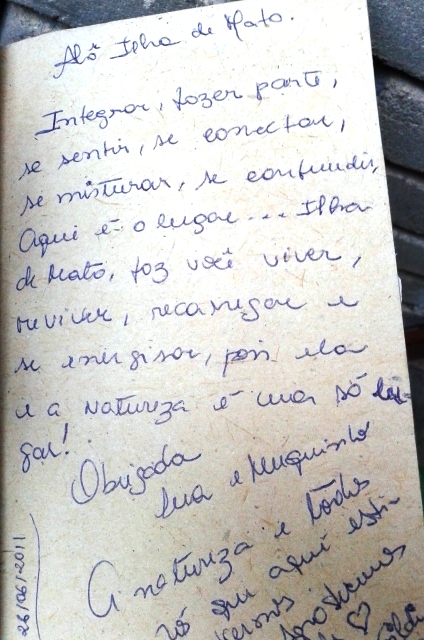 Alô Ilha de Mato.
Integrar, fazer parte,
se sentir, se conectar,
se misturar, se confundir,
Aqui é o lugar... Ilha
de Mato, faz você viver,
reviver, recarregar e
se energisar, pois ela
e a natureza é um só lu-
gar!
Obrigada
Lua e
A natureza e todos
nós que aqui esti-
vermos
28/06/2011